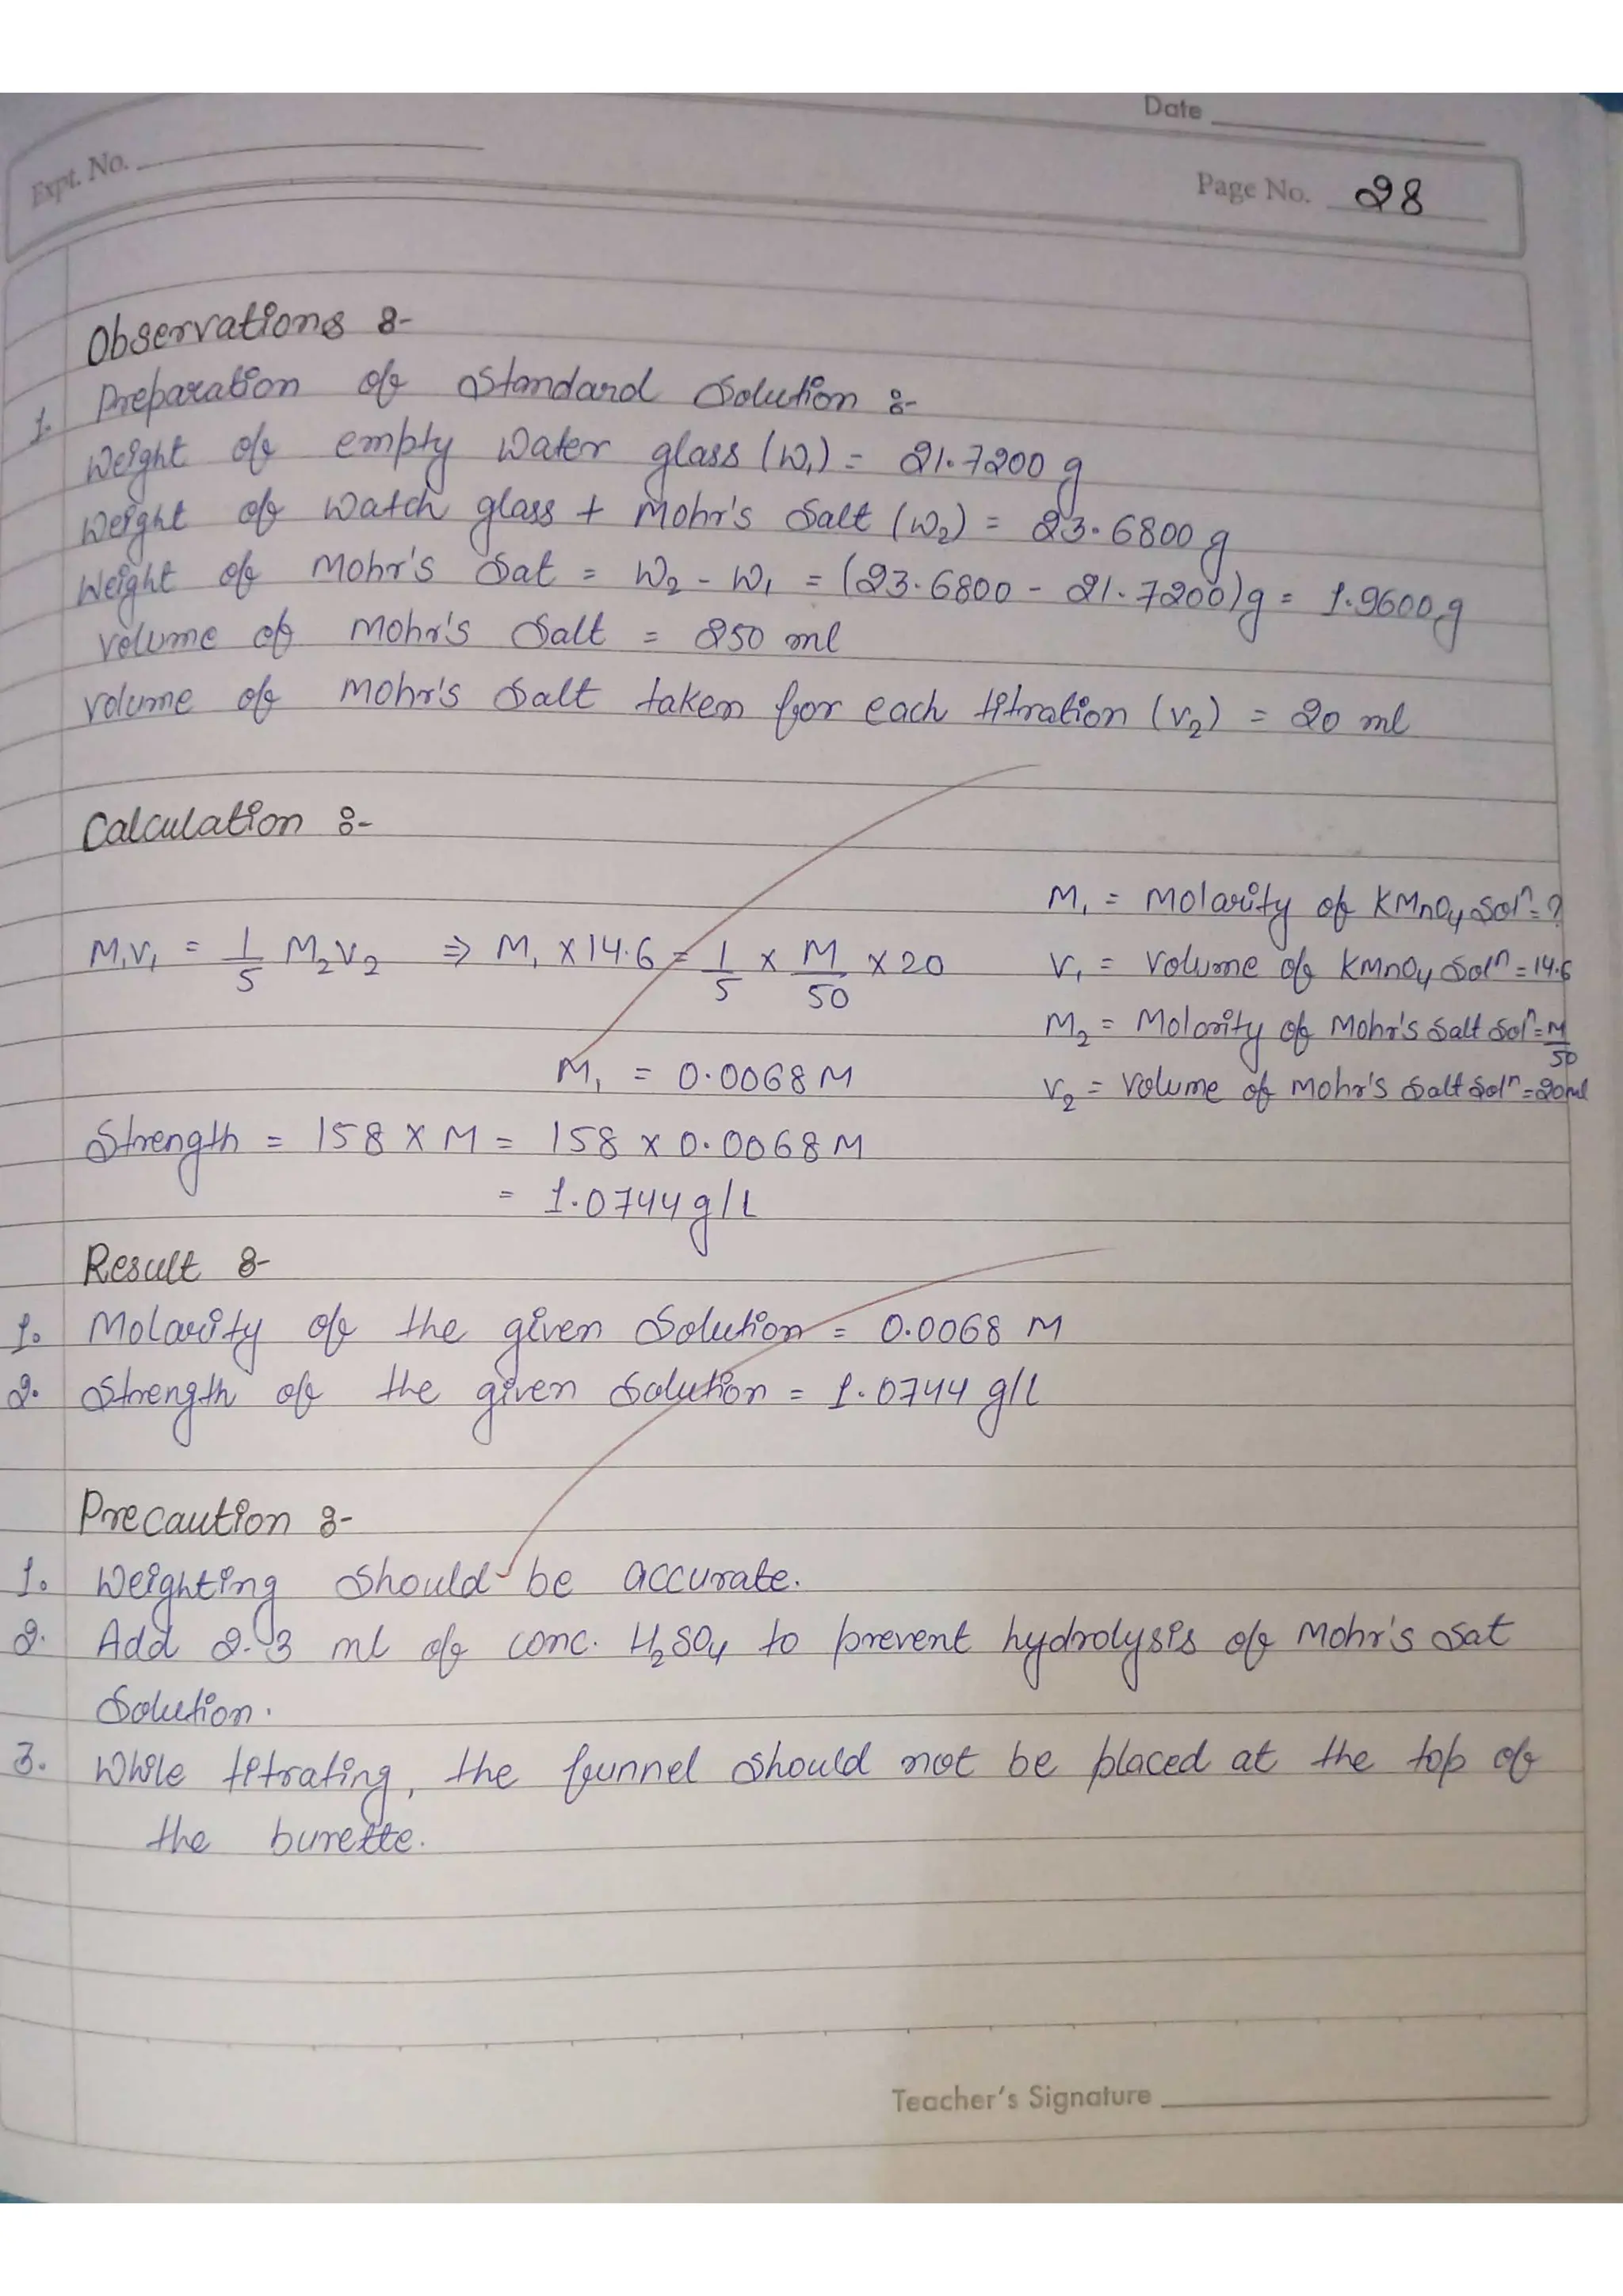 Date
Expt. No.
Page No. 28
Observations :-
1. Preparation of Standard Solution :-
Weight of empty Water glass (W₁) = 21.7200 g
Weight of Watch glass + Mohr's Salt (W₂) = 23.6800 g
Weight of Mohr's Sat = W₂ - W₁ = (23.6800 - 21.7200)g = 1.9600 g
Volume of Mohr's Salt = 250 ml
Volume of Mohr's Salt taken for each titration (V₂) = 20 ml
Calculation :-
M₁ = Molarity of KMnO₄ Solⁿ = ?
M₁V₁ = 1/5 M₂V₂ ⇒ M₁ × 14.6 = 1/5 × M/50 × 20
V₁ = Volume of KMnO₄ Solⁿ = 14.6
M₂ = Molarity of Mohr's Salt Solⁿ = M/50
M₁ = 0.0068 M
V₂ = Volume of Mohr's Salt Solⁿ = 20 ml
Strength = 158 × M = 158 × 0.0068 M
= 1.0744 g/L
Result :-
1. Molarity of the given Solution = 0.0068 M
2. Strength of the given Solution = 1.0744 g/L
Precaution :-
1. Weighting Should be accurate.
2. Add 2-3 ml of conc. H₂SO₄ to prevent hydrolysis of Mohr's Sat
Solution.
3. While titrating, the funnel Should not be placed at the top of
the burette.
Teacher's Signature